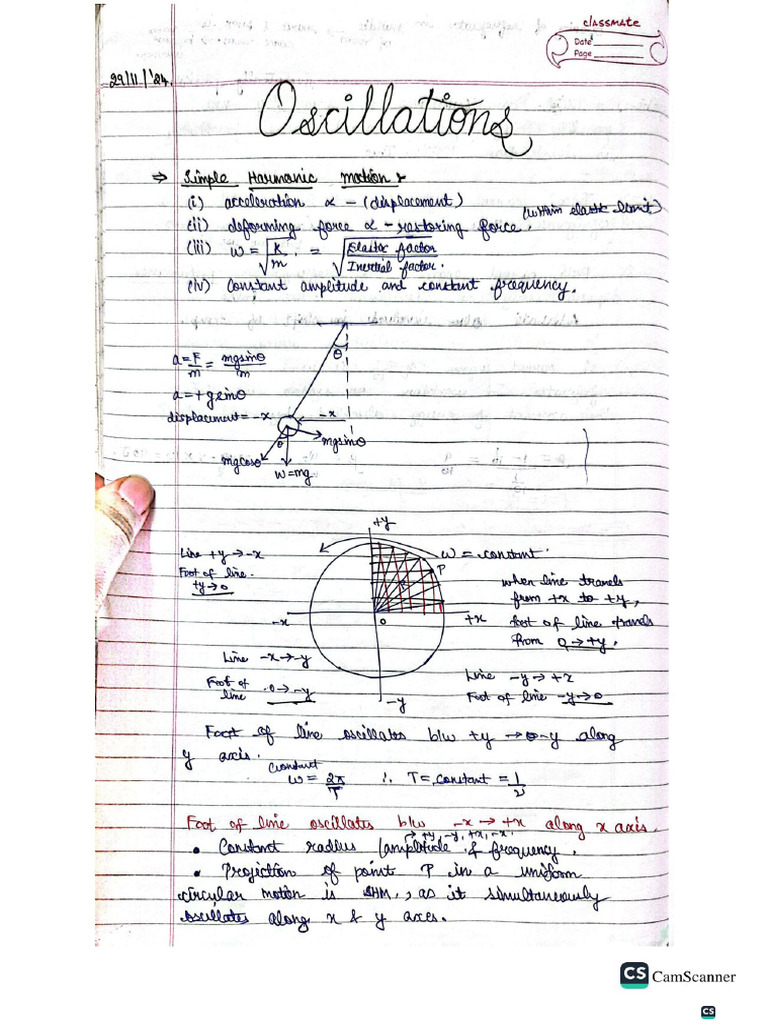 classmate
Date
Page
29/11/'24.
Oscillations
⇒ Simple Harmonic motion :
(i) acceleration ∝ - (displacement)
(ii) deforming force ∝ - restoring force. (within elastic limit)
(iii) ω = √(K/m) . = √(Elastic factor / Inertial factor.)
(iv) Constant amplitude and constant frequency.
θ
a = F/m = mgsinθ/m
a = + gsinθ
displacement = -x
-x
mgsinθ
θ
mgcosθ
W = mg
+y
Line +y → -x
Foot of line.
+y → 0
ω = constant.
P
when line travels
from +x to +y,
foot of line travels
from 0 → +y.
-x
0
+x
Line -x → -y
Foot of line 0 → -y
-y
Line -y → +x
Foot of line -y → 0
Foot of line oscillates b/w +y → -y along
y axis.
Constant
ω = 2π/T ∴ T = constant = 1/ν
Foot of line oscillates b/w -x → +x along x axis.
→ +y, -y, +x, -x.
• Constant radius (amplitude & frequency.
• Projection of point P in a uniform
circular motion is SHM., as it simultaneously
oscillates along x & y axes.
CS CamScanner
CS